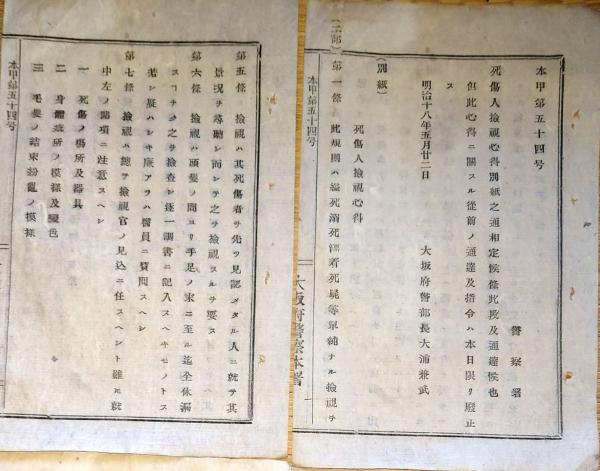 本甲第五十四号
警察署
死傷人検視心得別紙之通相定候条此段及通達候也
但此心得ニ関スル従前ノ通達及指令ハ本日限リ廃止
ス
明治十八年五月廿二日
大坂府警部長大浦兼武
(別紙)
死傷人検視心得
第一条 此規則ハ縊死溺死漂着死屍等単純ナル検視ヲ
本甲第五十四号
大坂府警察本署
第五条 検視ハ其死傷者ヲ先ツ見認メタル人ニ就テ其
景況ヲ尋聴シ而シテ之ヲ検視スルヲ要ス
第六条 検視ハ頭髪ノ間ヨリ手足ノ末ニ至ル迄全体漏
スコトナク之ヲ検査シ逐一調書ニ記入スヘキモノトス
若シ疑ハシキ廉アラハ医員ニ質問スヘシ
第七条 検視ハ総テ検視官ノ見込ニ任スヘシト雖モ就
中左ノ諸項ニ注意スヘシ
一 死傷ノ場所及器具
二 身体 ノ模様及変色
三 毛髪ノ結束紛乱ノ模様
本甲第五十四号